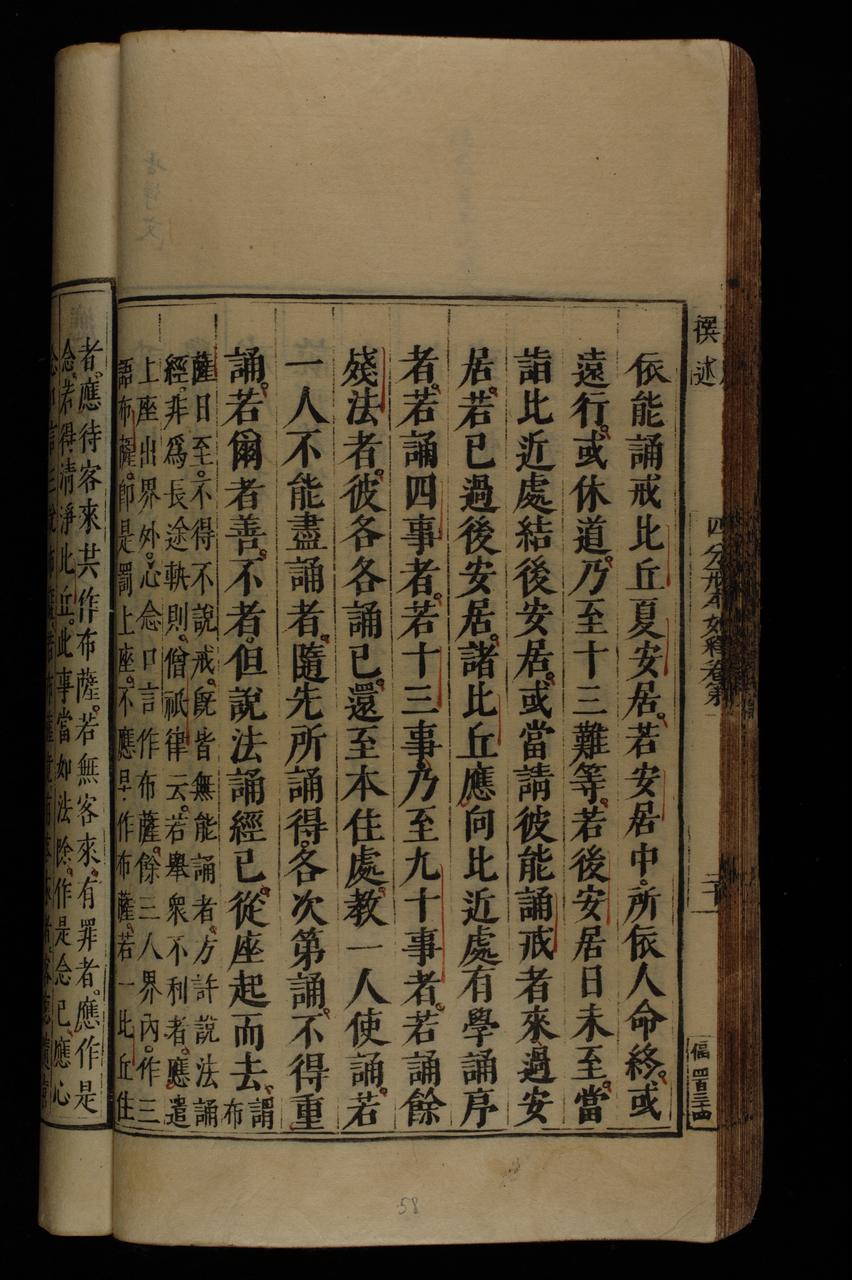 撰述
四分戒本如釋卷第
二十一
依能誦戒比丘夏安居若安居中所依人命終或
遠行或休道乃至十三難等若後安居日未至當
詣比近處結後安居或當請彼能誦戒者來過安
居若已過後安居諸比丘應向比近處有學誦序
者若誦四事者若十三事乃至九十事者若誦餘
殘法者彼各各誦已還至本住處教一人使誦若
一人不能盡誦者隨先所誦得各次第誦不得重
誦若爾者善不者但說法誦經已從座起而去謂布
薩日至不得不說戒既皆無能誦者方許說法誦
經非爲長途軼則僧祇律云若舉衆不利者應遣
上座出界外心念口言作布薩餘三人界內作三
語布薩即是罰上座不應早作布薩若一比丘住
者應待客來共作布薩若無客來有罪者應作是
念若得清淨比丘此事當如法除作是念已應心
58